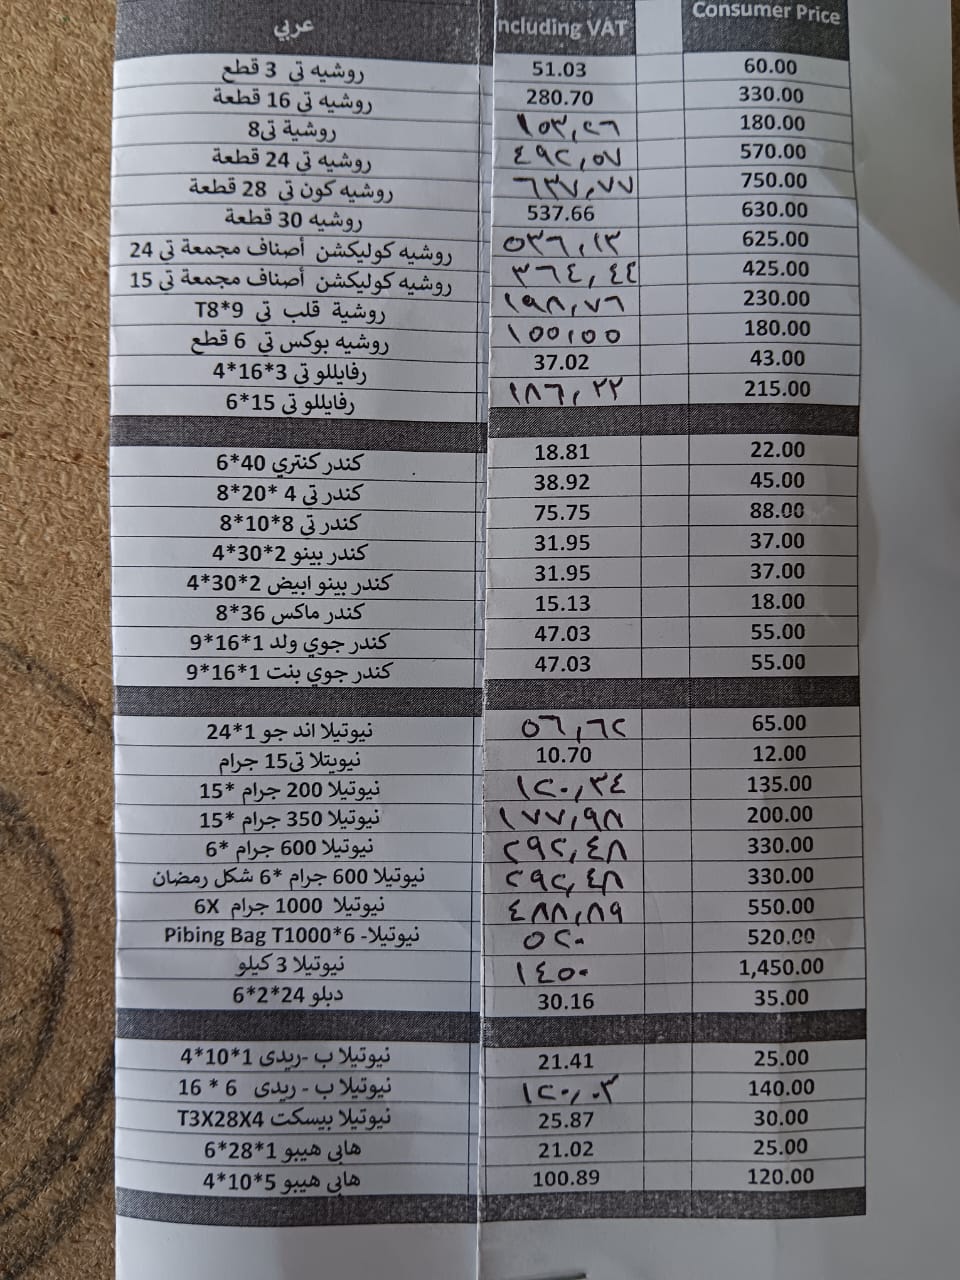 عربي ncluding VAT Consumer Price
روشيه تي 3 قطع 51.03 60.00
روشيه تي 16 قطعة 280.70 330.00
روشية تي8 ١٥٣,٢٦ 180.00
روشيه تي 24 قطعة ٤٩٢,٥٧ 570.00
روشيه كون تي 28 قطعة ٦٣٧,٧٧ 750.00
روشيه 30 قطعة 537.66 630.00
روشيه كوليكشن أصناف مجمعة تي 24 ٥٣٦,١٣ 625.00
روشيه كوليكشن أصناف مجمعة تي 15 ٣٦٤,٤٤ 425.00
روشية قلب تي T8*9 ١٩٨,٧٦ 230.00
روشيه بوكس تي 6 قطع ١٥٥,٥٥ 180.00
رفايللو تي 3*16*4 37.02 43.00
رفايللو تي 15*6 ١٨٦,٢٢ 215.00
كندر كنتري 40*6 18.81 22.00
كندر تي 4 *20*8 38.92 45.00
كندر تي 8*10*8 75.75 88.00
كندر بينو 2*30*4 31.95 37.00
كندر بينو ابيض 2*30*4 31.95 37.00
كندر ماكس 36*8 15.13 18.00
كندر جوي ولد 1*16*9 47.03 55.00
كندر جوي بنت 1*16*9 47.03 55.00
نيوتيلا اند جو 1*24 ٥٦,٦٢ 65.00
نيويتلا تى15 جرام 10.70 12.00
نيوتيلا 200 جرام *15 ١٢٠,٣٤ 135.00
نيوتيلا 350 جرام *15 ١٧٧,٩٨ 200.00
نيوتيلا 600 جرام *6 ٢٩٢,٤٨ 330.00
نيوتيلا 600 جرام *6 شكل رمضان ٢٩٢,٤٨ 330.00
نيوتيلا 1000 جرام 6X ٤٨٨,٨٩ 550.00
نيوتيلا- Pibing Bag T1000*6 ٥٢٠ 520.00
نيوتيلا 3 كيلو ١٤٥٠ 1,450.00
دبلو 24*2*6 30.16 35.00
نيوتيلا ب -ريدى 1*10*4 21.41 25.00
نيوتيلا ب - ريدى 6 * 16 ١٢٠,٠٣ 140.00
نيوتيلا بيسكت T3X28X4 25.87 30.00
هابى هيبو 1*28*6 21.02 25.00
هابى هيبو 5*10*4 100.89 120.00